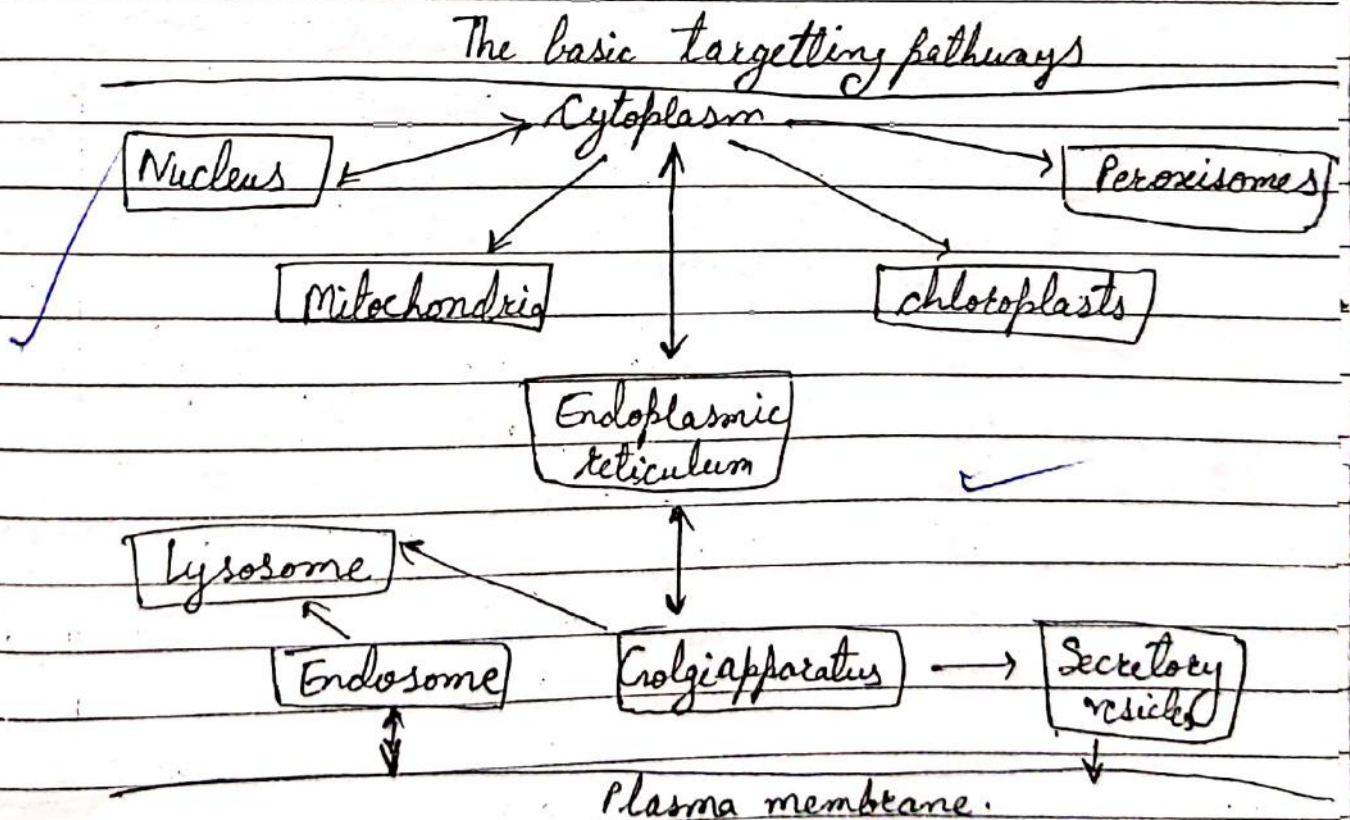 The basic targetting pathways
Cytoplasm
Nucleus
Peroxisomes
Mitochondria
chloroplasts
Endoplasmic
reticulum
Lysosome
Endosome
Golgi apparatus
Secretory
vesicles
Plasma membrane.